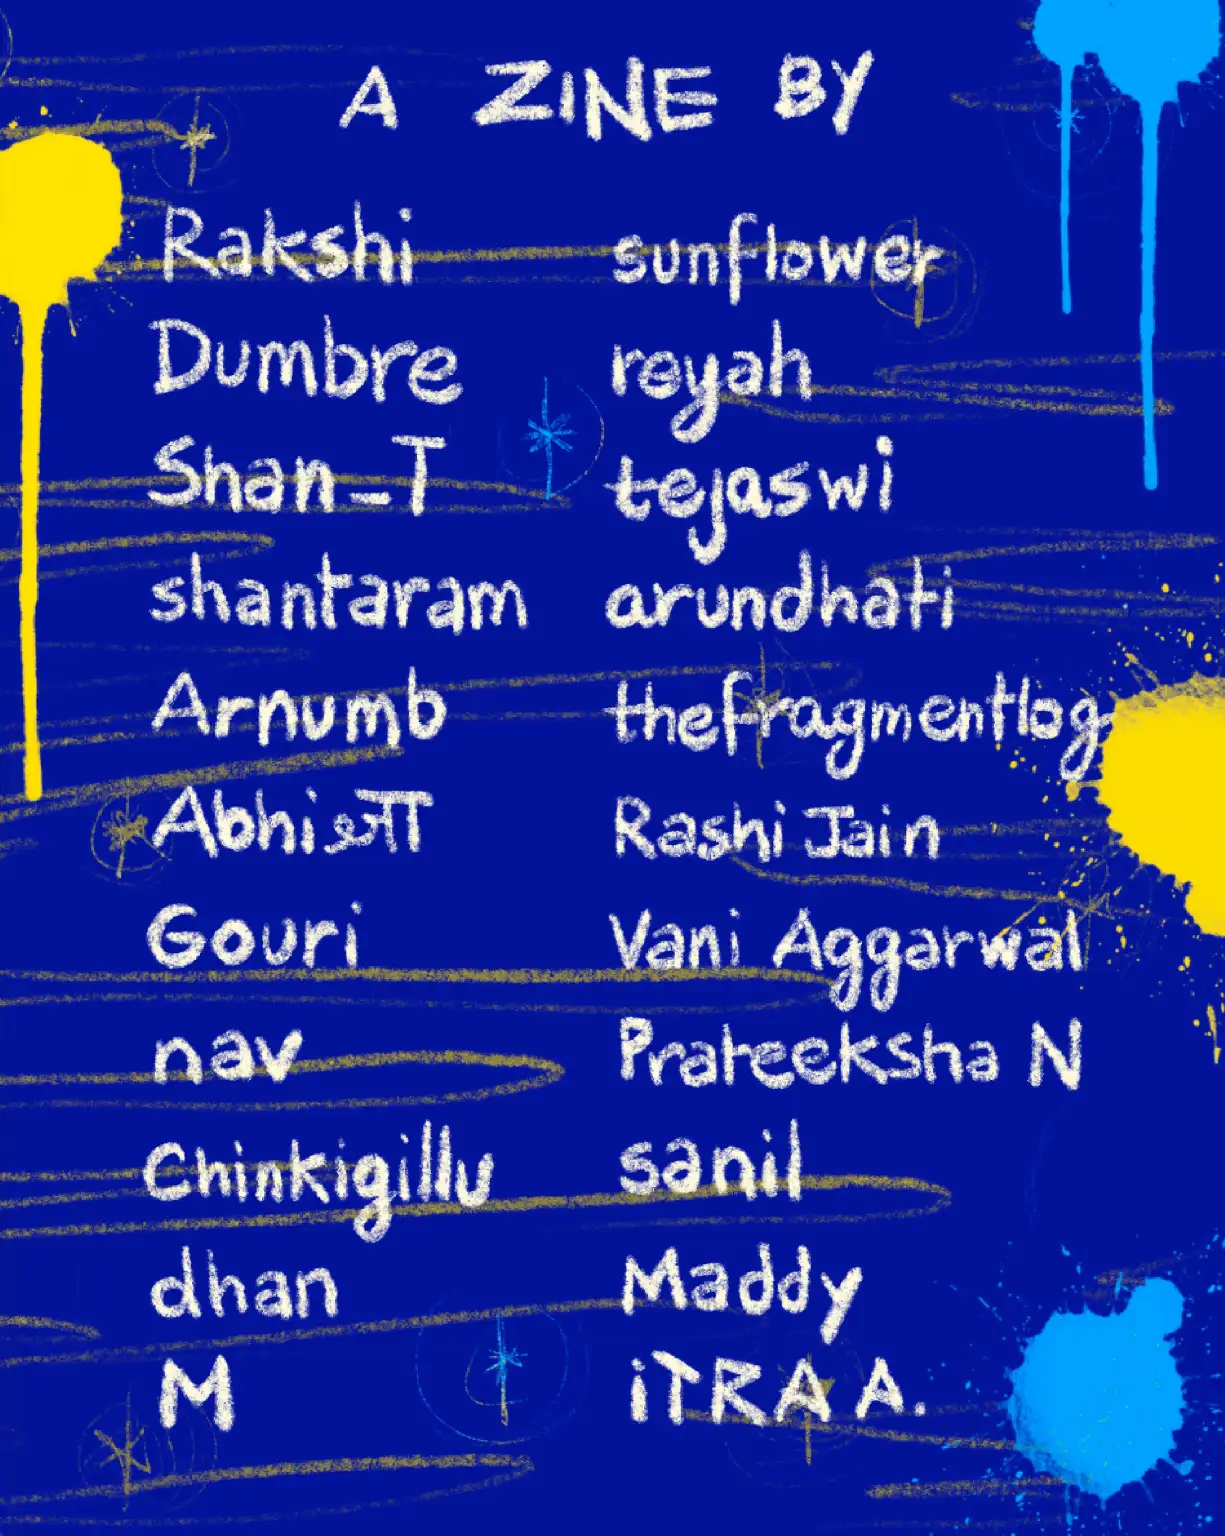 A ZINE BY
Rakshi
Dumbre
Shan_T
shantaram
Arnumb
Abhiश्री
Gouri
nav
Chinkigillu
dhan
M
sunflower
royah
tejaswi
arundhati
thefragmentlog
Rashi Jain
Vani Aggarwal
Prateeksha N
sanil
Maddy
iTRA A.